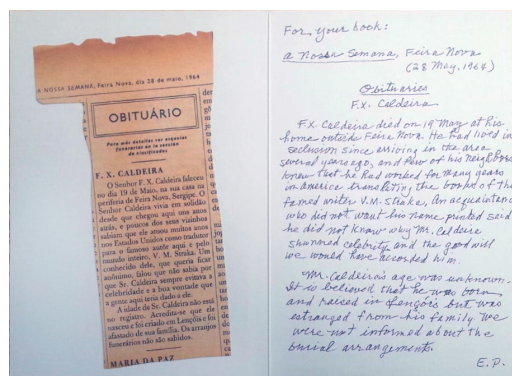 A NOSSA SEMANA, Feira Nova, dia 28 de maio, 1964
OBITUÁRIO
Para mais detalhes ver esquelas
funerárias en la sección
de clasificados
F. X. CALDEIRA
O Senhor F. X. Caldeira faleceu
no dia 19 de Maio, na sua casa na
periferia de Feira Nova, Sergipe. O
Senhor Caldeira vivia em solidão
desde que chegou aqui uns anos
atrás, e poucos dos seus vizinhos
sabiam que ele atuou muitos anos
nos Estados Unidos como tradutor
para o famoso autor aqui e pelo
mundo inteiro, V. M. Straka. Um
conhecido dele, que queria ficar
anônimo, falou que não sabia por
que Sr. Caldeira sempre evitava a
celebridade e a boa vontade que
a gente aqui teria dado a ele.
A idade de Sr. Caldeira não está
no registro. Acredita-se que ele
nasceu e foi criado em Lençóis e foi
afastado de sua família. Os arranjos
funerários não são sabidos.
MARIA DA PAZ
For your book:
a Nossa Semana, Feira Nova
(28 May, 1964)
Obituaries
F.X. Caldeira
F.X. Caldeira died on 19 May at his
home outside Feira Nova. He had lived in
seclusion since arriving in the area
several years ago, and few of his neighbors
knew that he had worked for many years
in america translating the books of the
famed writer V.M. Straka. An acquaintance
who did not want his name printed said
he did not know why Mr. Caldeira
shunned celebrity and the good will
we would have accorded him.
Mr. Caldeira's age was unknown.
It is believed that he was born
and raised in Lençóis but was
estranged from his family. We
were not informed about the
burial arrangements.
E.P.